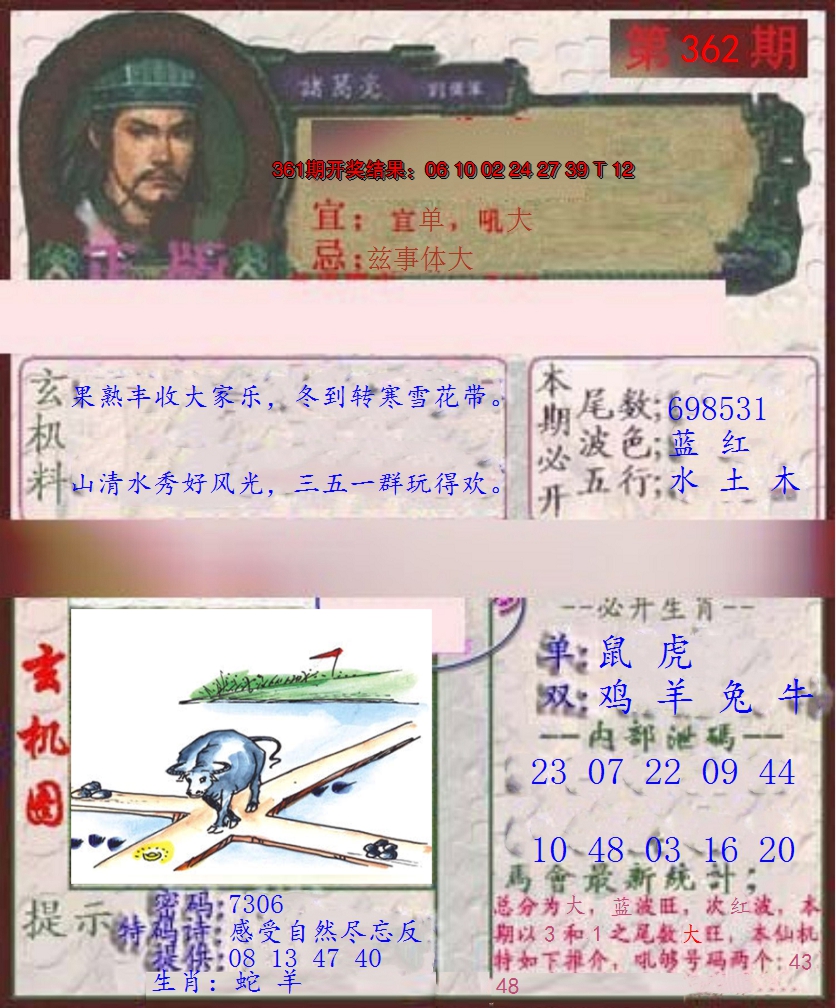 第 362 期
諸葛亮
361期开奖结果：06 10 02 24 27 39 T 12
宜：宜单，吼大
忌：兹事体大
正版
玄机料
果熟丰收大家乐，冬到转寒雪花带。
山清水秀好风光，三五一群玩得欢。
本期必开
尾数:698531
波色:蓝 红
五行:水 土 木
玄机图
--必开生肖--
单:鼠 虎
双:鸡 羊 兔 牛
—内部泄碼—
23 07 22 09 44
10 48 03 16 20
馬會最新统計；
总分为大，蓝波旺，次红波，本
期以3和1之尾数大旺，本仙机
特如下推介，吼够号码两个：43
48
提示
密码:7306
特码诗:感受自然尽忘反
提供:08 13 47 40
生肖：蛇 羊